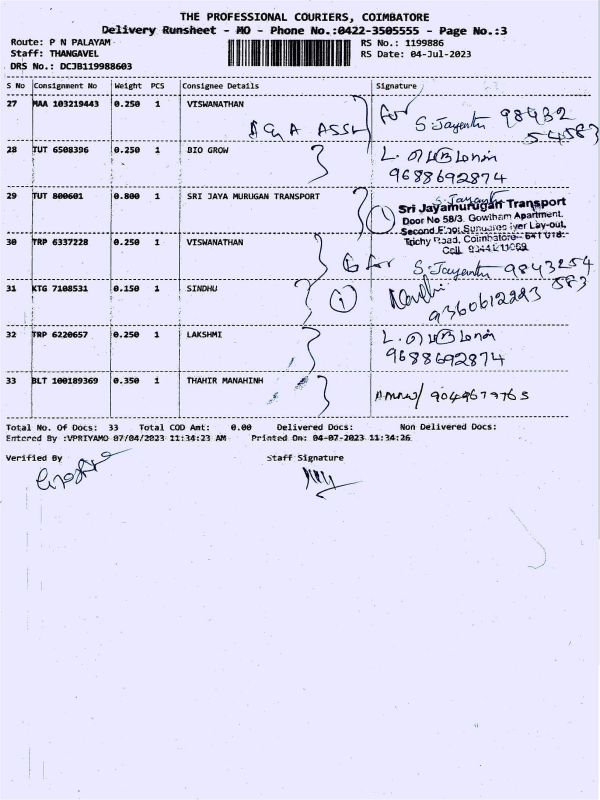 THE PROFESSIONAL COURIERS, COIMBATORE
Delivery Runsheet - MO - Phone No.:0422-3505555 - Page No.:3
Route: P N PALAYAM
RS No.: 1199886
Staff: THANGAVEL
RS Date: 04-Jul-2023
DRS No.: DCJB119988603
S No Consignment No Weight PCS Consignee Details Signature
27 MAA 103219443 0.250 1 VISWANATHAN for
S. Jayanthi 98432
54583
28 TUT 6508396 0.250 1 BIO GROW L.
9688692874
29 TUT 800601 0.800 1 SRI JAYA MURUGAN TRANSPORT
Sri Jayamurugan Transport
Door No 58/3, Gowtham Apartment,
Second Floor, Lay-out,
Trichy Road, Coimbatore - 641 018.
Cell
30 TRP 6337228 0.250 1 VISWANATHAN
for S. Jayanthi 9843254
583
31 KTG 7108531 0.150 1 SINDHU 1
9360612223
32 TRP 6220657 0.250 1 LAKSHMI L.
9688692874
33 BLT 100189369 0.350 1 THAHIR MANAHINH
Total No. Of Docs: 33 Total COD Amt: 0.00 Delivered Docs: Non Delivered Docs:
Entered By :VPRIYAMO 07/04/2023 11:34:23 AM Printed On: 04-07-2023 11:34:26
Verified By Staff Signature